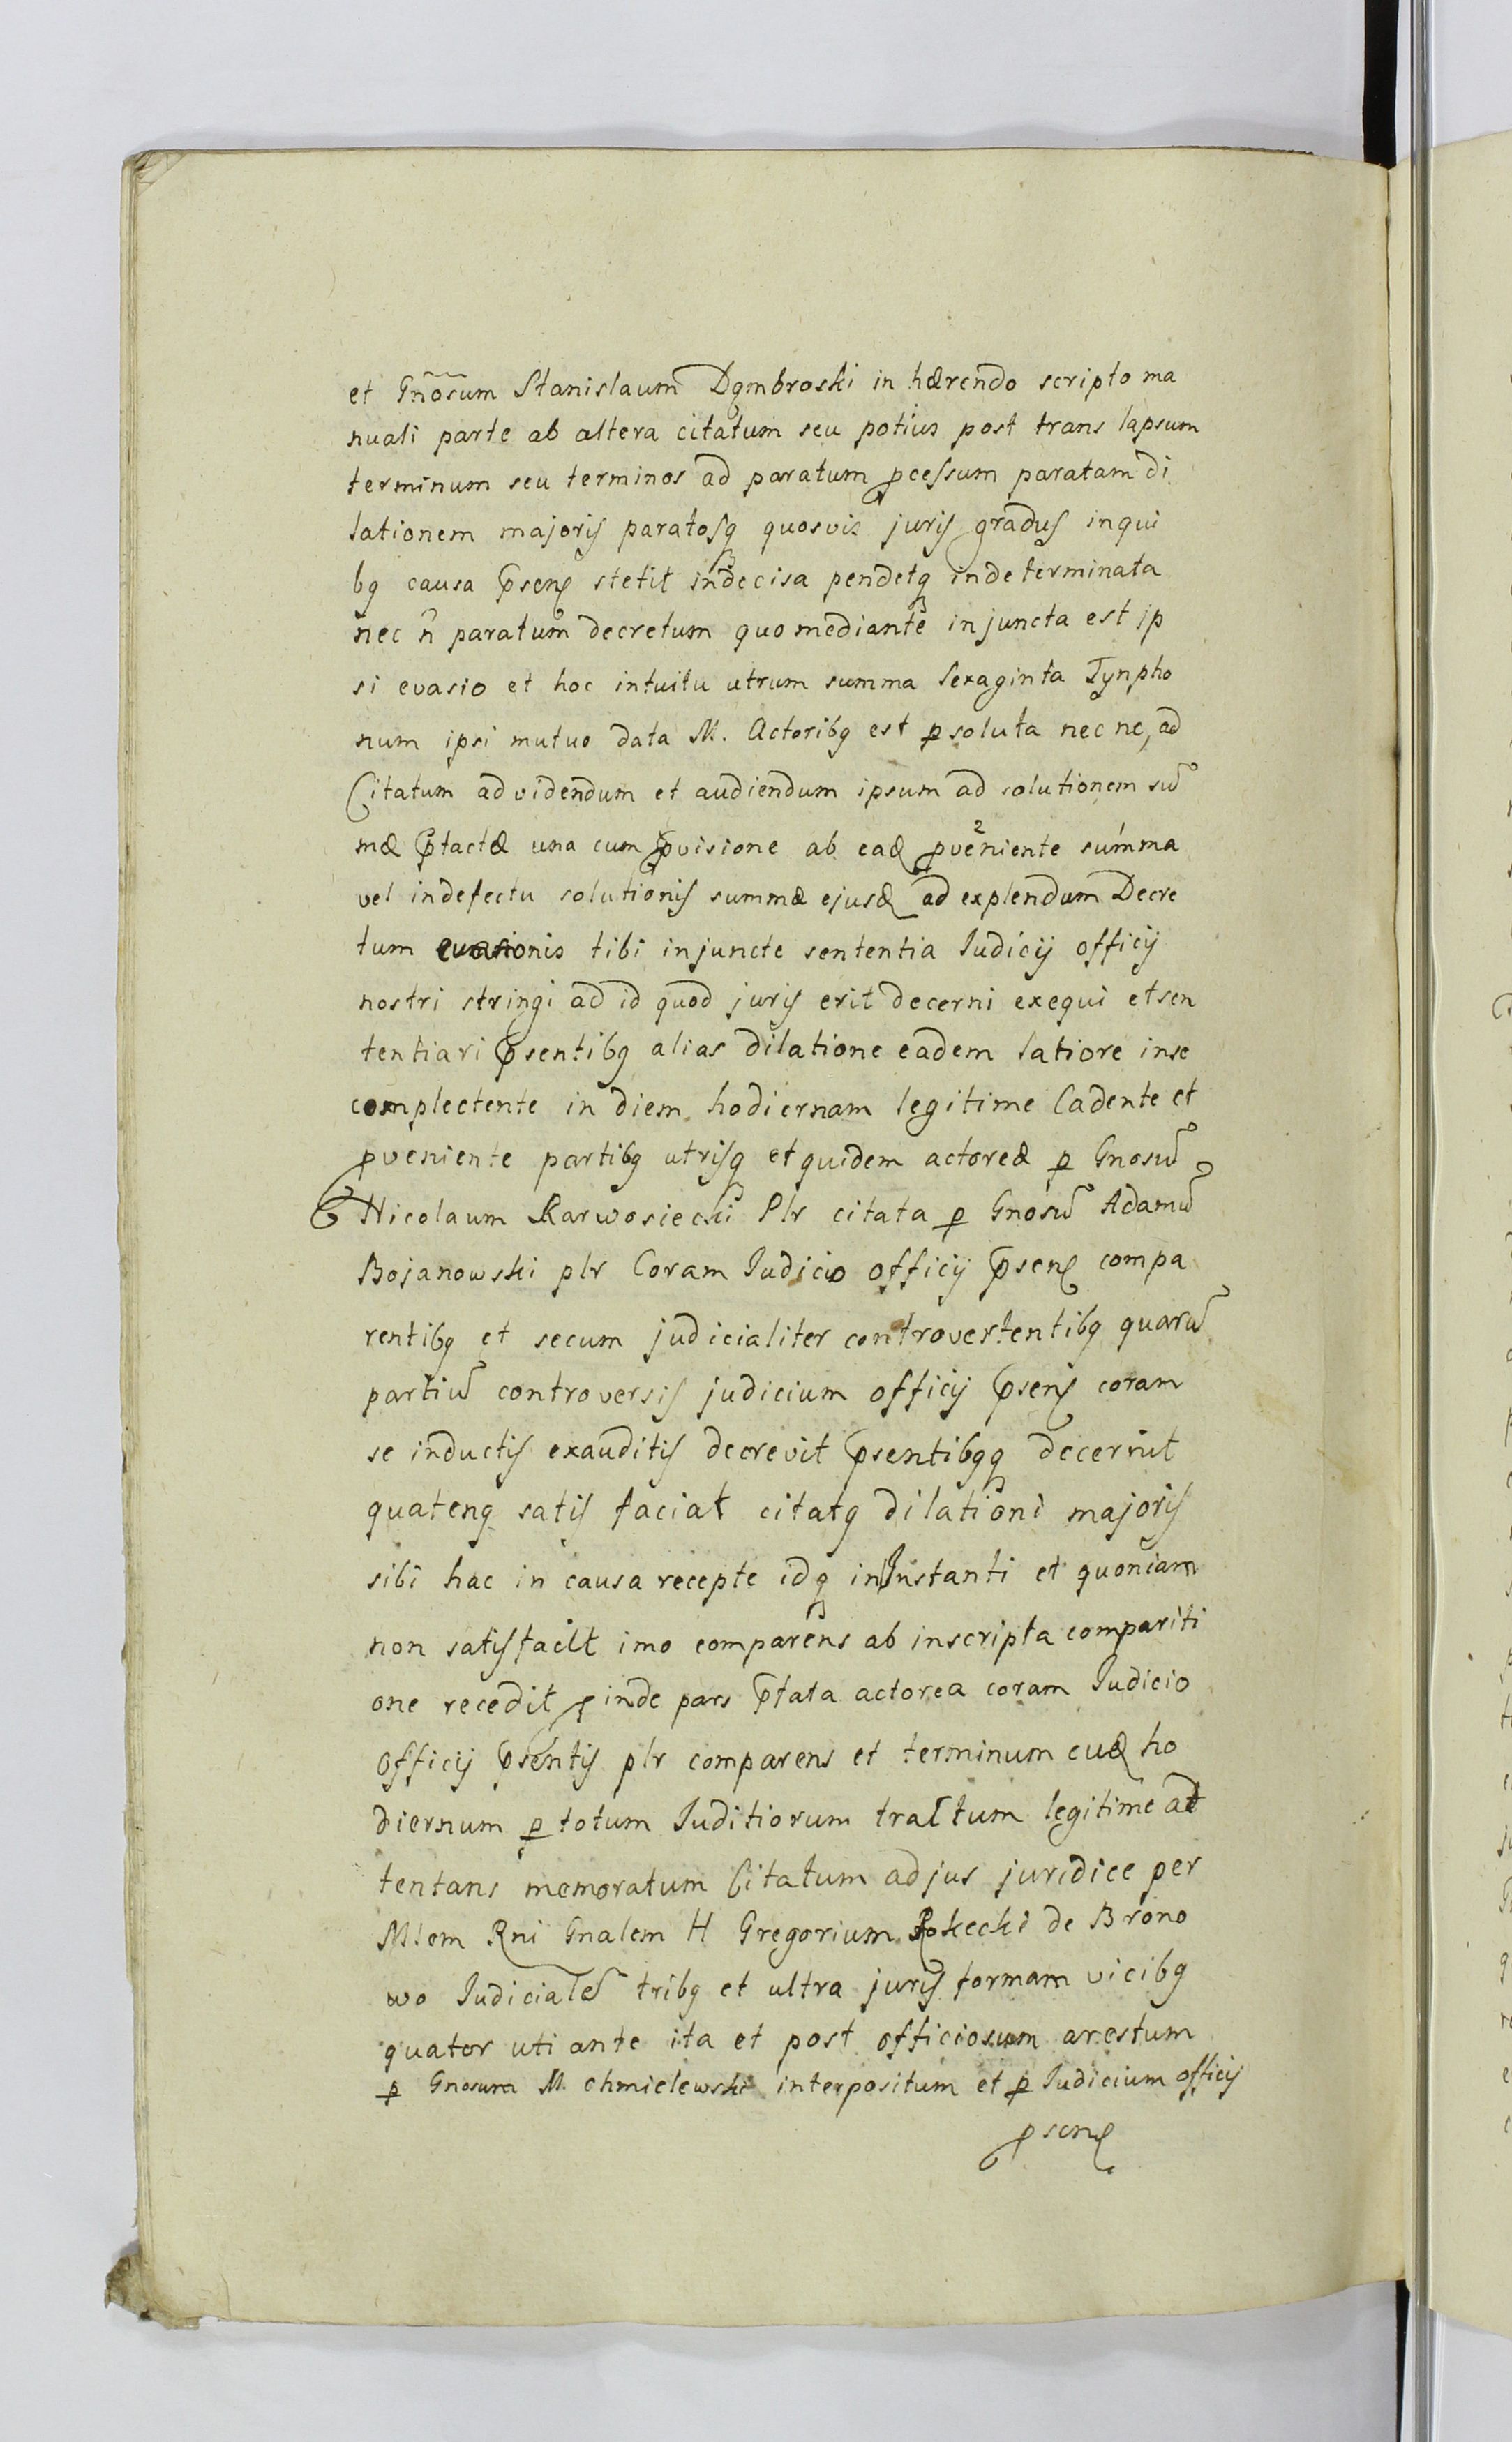 et Gñosum Stanislaum Dąmbroski in hærendo scripto ma
nuali parte ab altera citatum seu potius post trans lapsum
terminum seu terminos ad paratum ꝓcessum paratam di
lationem majoris paratosq quosvis juris gradus inqui
bq causa p̃sens stetit indecisa pendetq indeterminata
nec ñ paratum decretum quo mediante injuncta est ip
si evasio et hoc intuitu utrum summa sexaginta Tynpho
num ipsi mutuo data M. Actoribq est ꝑsoluta nec ne, ad
Citatum ad videndum et audiendum ipsum ad solutionem sum̃
mæ p̃tactæ una cum ꝓvisione ab ead ꝓveniente summa
vel indefectu solutionis summæ ejusd ad explendum Decre
tum evasionis tibi injuncte sententia Iudicij officij
nostri stringi ad id quod juris erit decerni exequi et sen
tentiari p̃sentibq alias dilatione eadem latiore inse
complectente in diem hodiernam legitime Cadente et
ꝓveniente partibq utrisq et quidem actoreæ ꝑ Gnosum̃
Nicolaum Karwosiecki Plr citata ꝑ Gnosum̃ Adamum̃
Bojanowski plr Coram Iudicio officij p̃sens compa
rentibq et secum judicialiter controvertentibq quarum̃
partium̃ controversis judicium officij p̃sens coram
se inductis exauditis decrevit p̃sentibqq decernit
quatenq satis faciat citatq dilationi majoris
sibi hac in causa recepte idq in Instanti et quoniam
non satisfacit imo comparens ab inscripta compariti
one recedit ꝓinde pars p̃tata actorea coram Iudicio
officij p̃sentis plr comparens et terminum eund ho
diernum ꝑ totum Iuditiorum tractum legitime at
tentans memoratum Citatum ad jus juridice per
Mlem Rni Gnalem H Gregorium Rokecki de Brono
wo Iudicialem̃ tribq et ultra juris formam vicibq
quator uti ante ita et post officiosum arestum
ꝑ Gnosum M. Chmielewski interpositum et ꝑ Iudicium officij
p̃sens